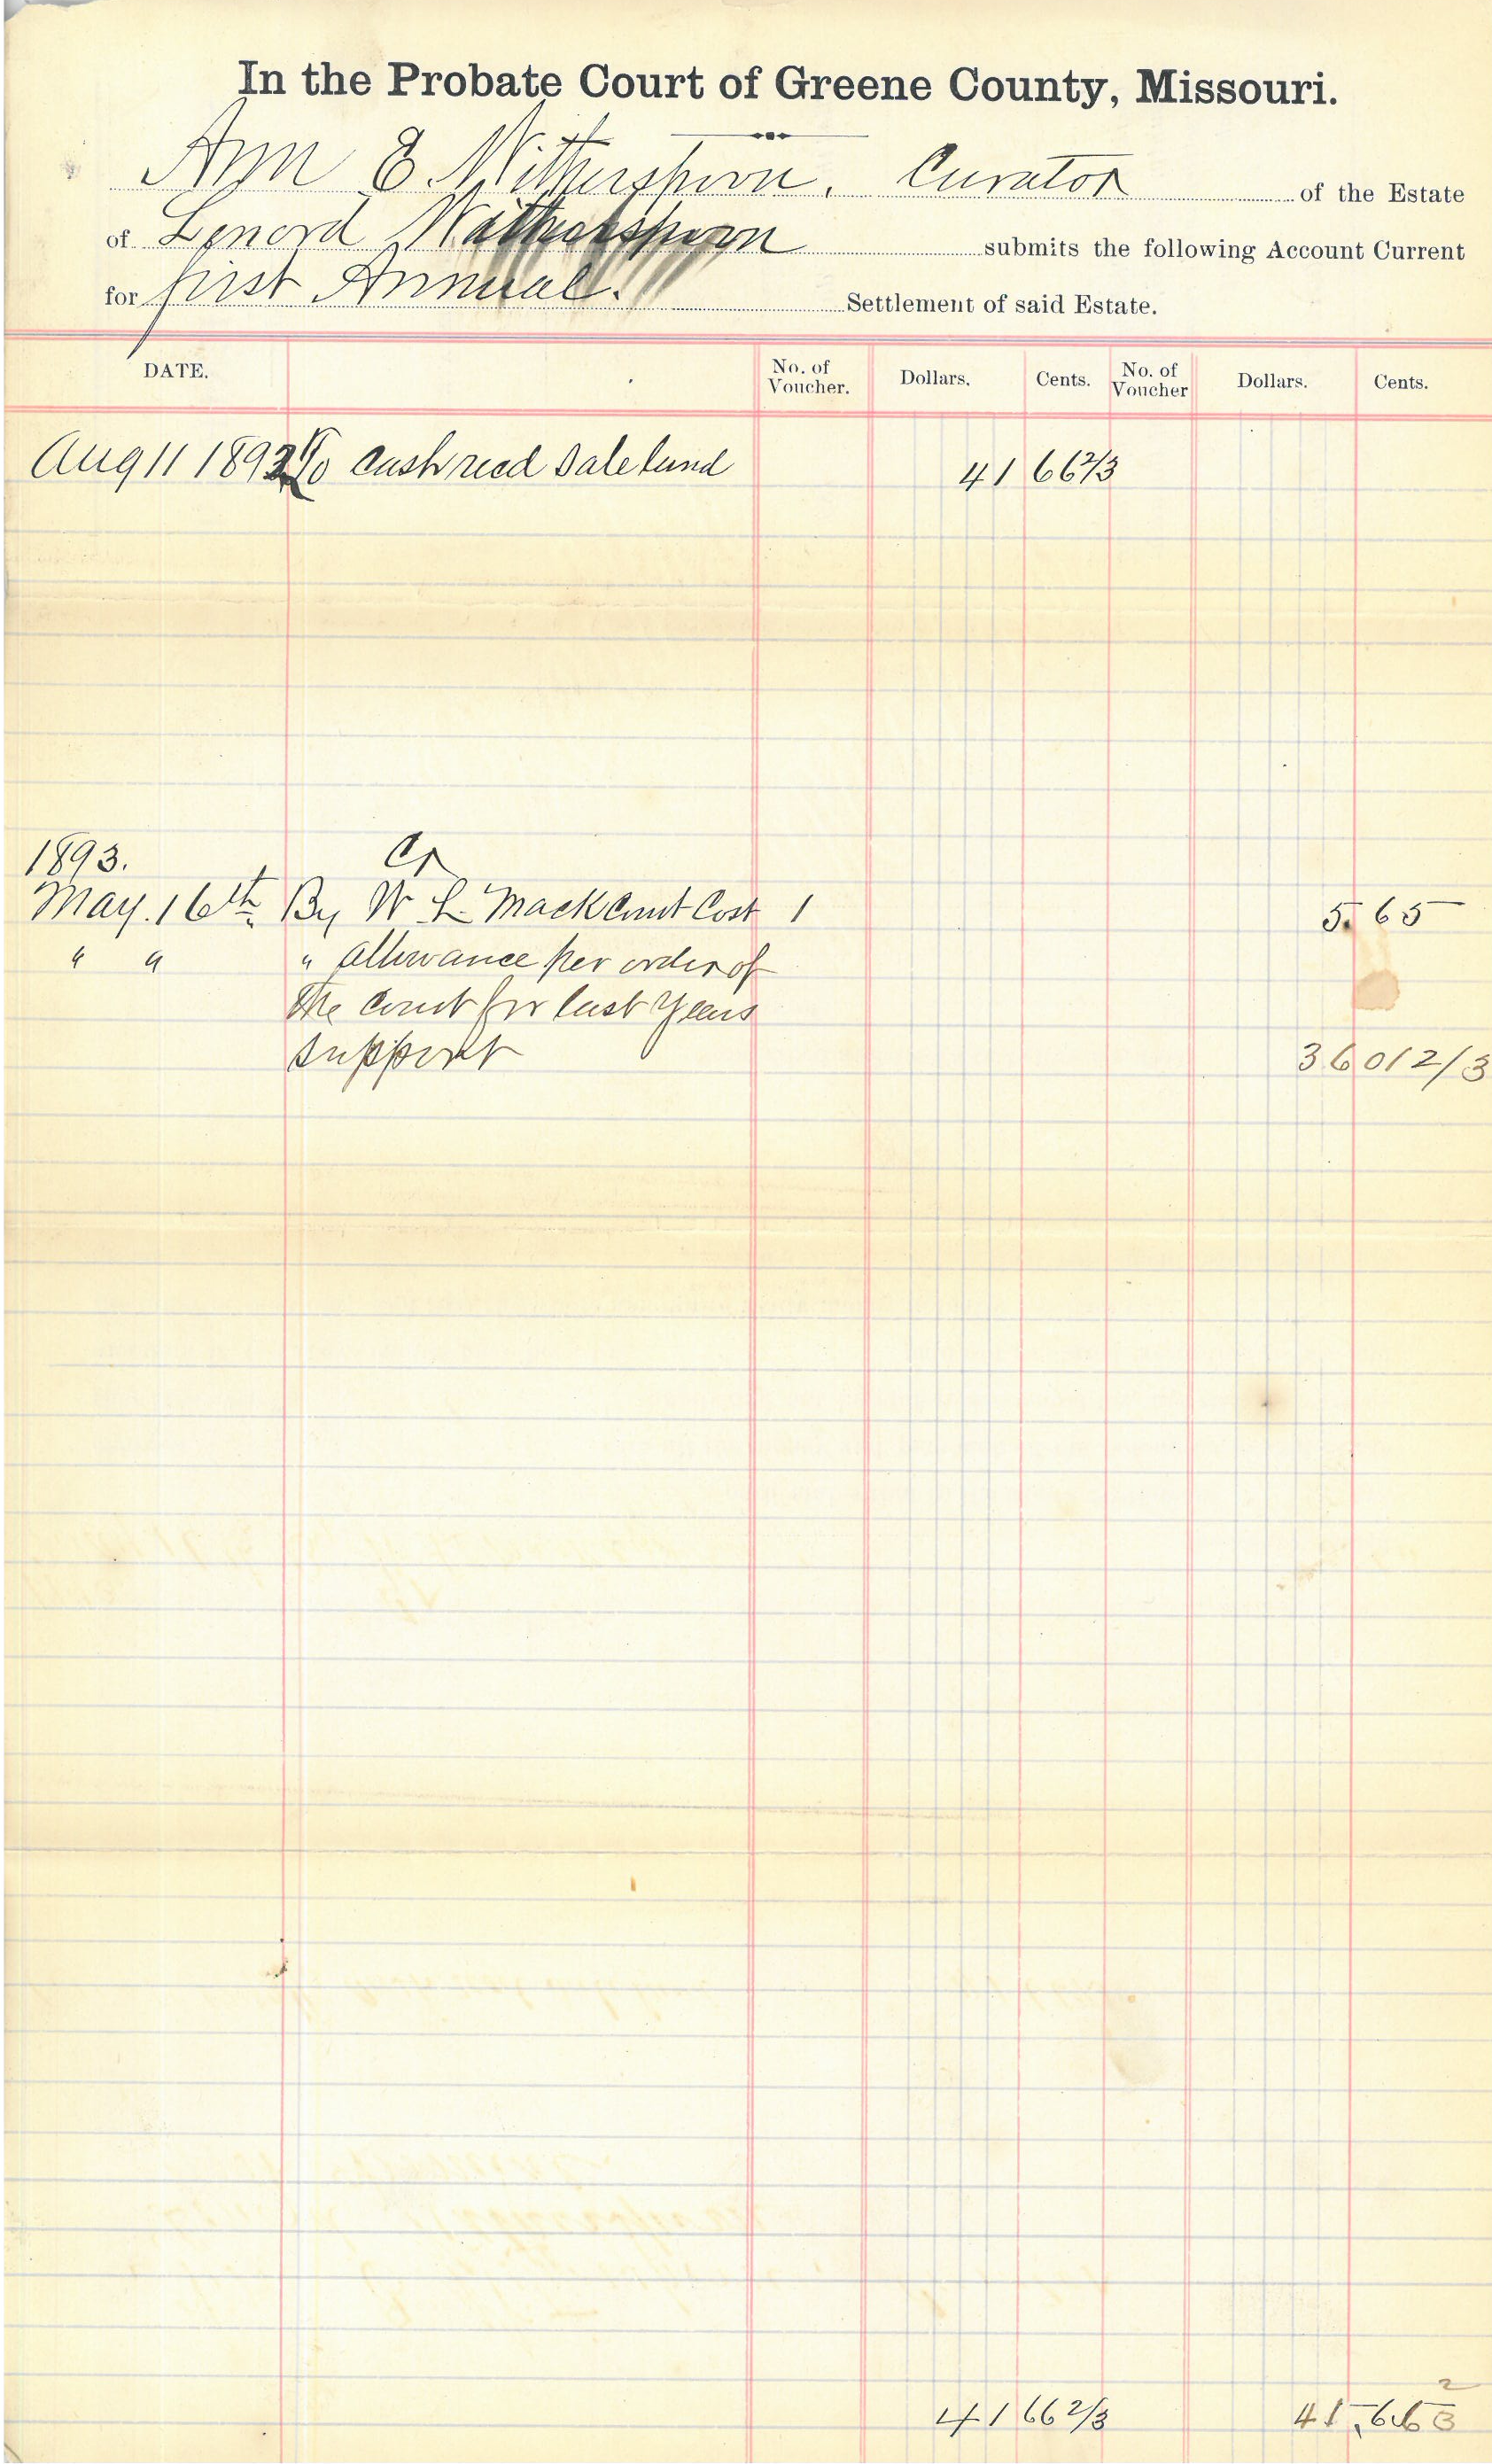 In the Probate Court of Greene County, Missouri.
Ann E. Witherspoon. Curator of the Estate
of Lenord Witherspoon submits the following Account Current
for first Annual. Settlement of said Estate.
DATE. No. of Voucher. Dollars. Cents. No. of Voucher Dollars. Cents.
Aug 11 1892 To Cash recd Sale land 41 66 2/3
1893. Cr
May. 16th By W L Mack Court Cost 1 5. 65
" " " allowance per order of
the Court for last Years
support 36 01 2/3
41 66 2/3 41,66 2/3